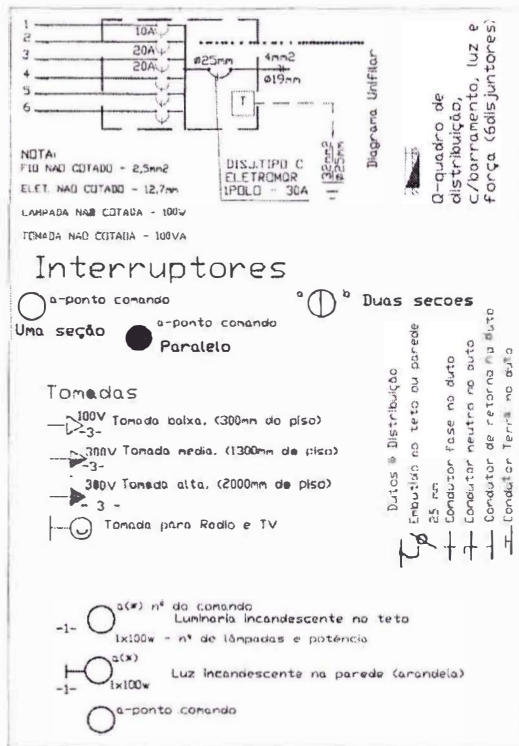 1
10A
2
20A
3
20A
4
5
6
ø25mm
4mm2
ø19mm
T
Diagrama Unifilar
DISJ.TIPO C
ELETROMGR
1POLO - 30A
Q-quadro de
distribuição,
c/barramento, luz e
força (6disjuntores)
NOTA:
FIO NAO COTADO - 2,5mm2
ELET. NAO COTADO - 12,7mm
LAMPADA NAO COTADA - 100w
TOMADA NAO COTADA - 100VA
Interruptores
a-ponto comando
Uma seção
a b Duas secoes
a-ponto comando
Paralelo
Tomadas
100V Tomada baixa. (300mm do piso)
-3-
300V Tomada media. (1300mm do piso)
-3-
300V Tomada alta. (2000mm do piso)
- 3 -
Tomada para Radio e TV
Dutos e Distribuição
Embutido no teto ou parede
25 mm
Condutor fase no duto
Condutor neutro no duto
Condutor de retorno no duto
Condutor Terra no duto
a(*) nº do comando
-1- Luminaria incandescente no teto
1x100w - nº de lâmpadas e potência
a(*)
Luz incandescente na parede (arandela)
-1- 1x100w
a-ponto comando